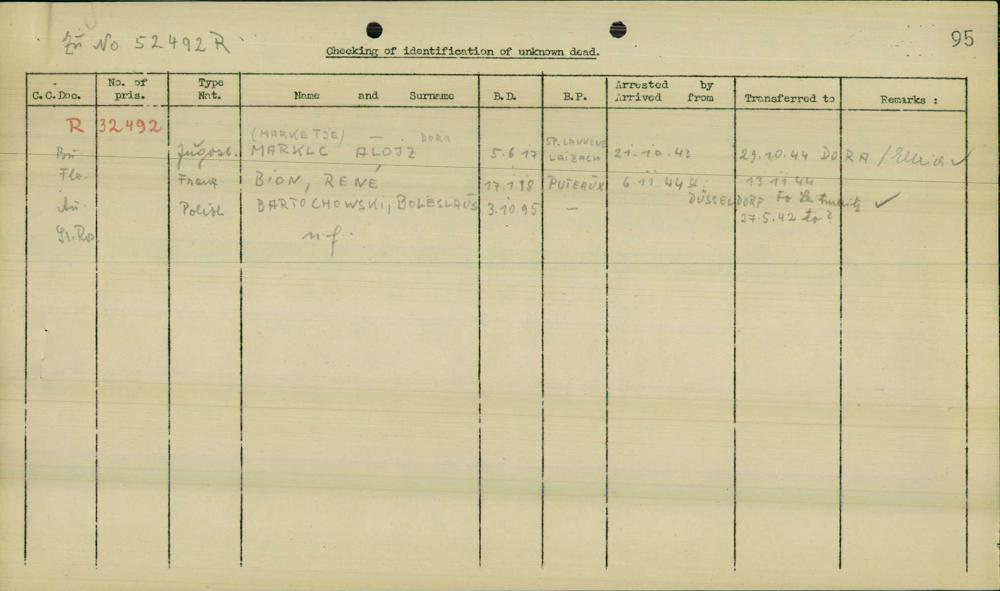 Zu No 52492 R
95
Checking of identification of unknown dead.
C.C.Doc. No. of pris. Type Nat. Name and Surname B.D. B.P. Arrested by Arrived from Transferred to Remarks :
R 32492
(MARKETJE) — DORA
Bu Jugosl. MARKLC ALOJZ 5.6.17 LAIBACH 21.10.43 29.10.44 DORA / Ellrich ✓
Flo. Franz. BION, RENÉ 17.1.18 PUTEAUX 6.11.44 13.11.44
Au. Polish BARTOCHOWSKI, BOLESLAUS 3.10.95 — DÜSSELDORF To Leitmeritz ✓
27.5.42 to ?
Gr. Ros. n.f.